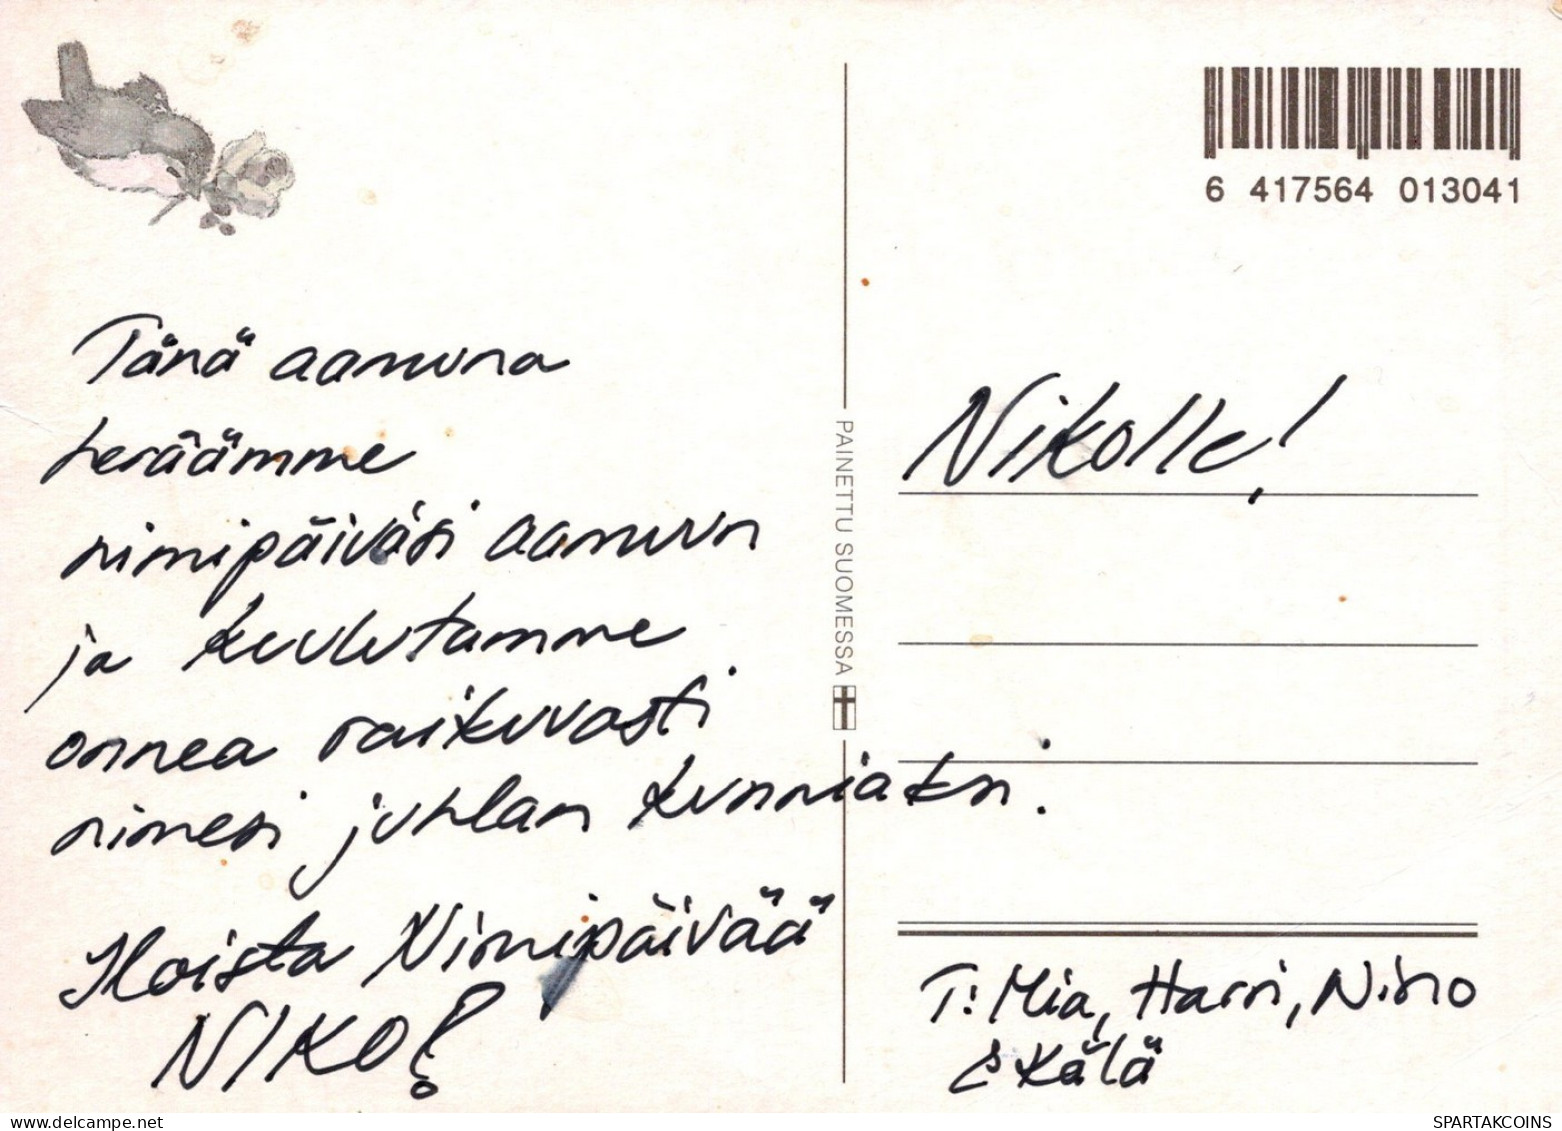 6 417564 013041
Tänä aamuna
heräämme
nimipäiväsi aamuun
ja kuulutamme
onnea raikuvasti
nimesi juhlan kunniaksi.
Iloista Nimipäivää
NIKO!
PAINETTU SUOMESSA
Nikolle!
T: Mia, Harri, Nino
& Kälä
SPARTAKCOINS